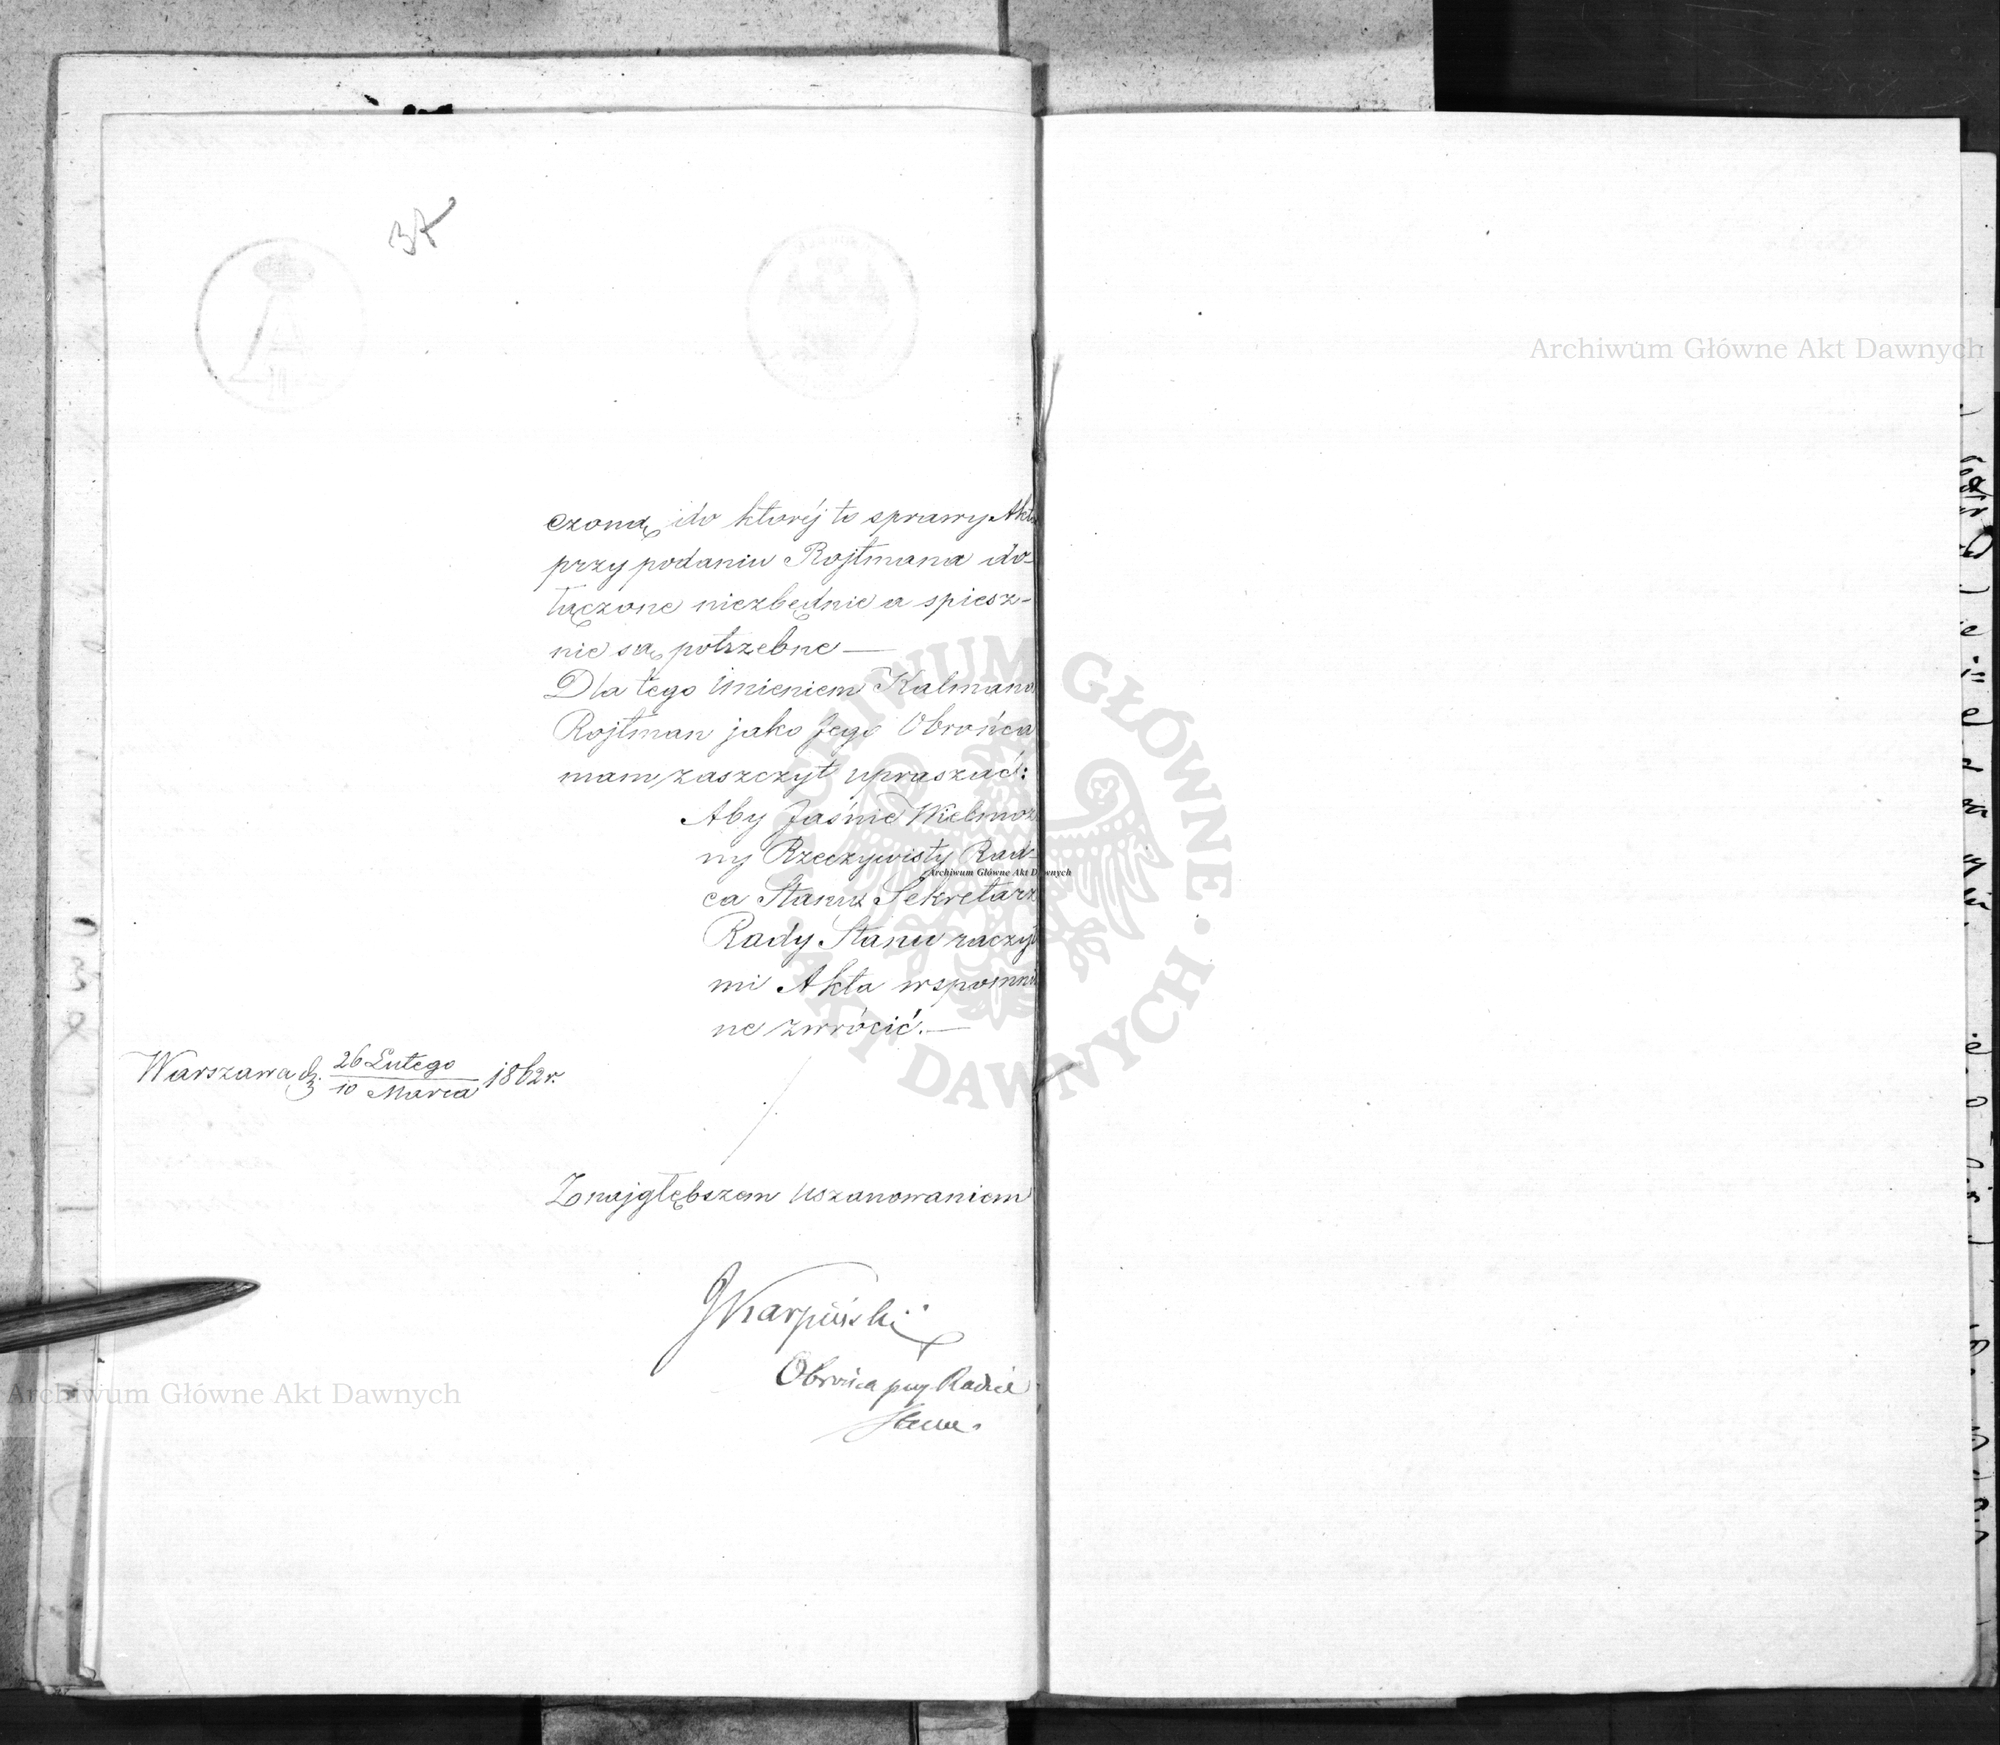 37
czoną, do której to sprawy Akta
przy podaniu Rojtmana do-
łączone niezbędnie a spiesz-
nie są potrzebne —
Dla tego imieniem Kalmana
Rojtman jako Jego Obrońca
mam zaszczyt upraszać:
Aby Jaśnie Wielmoż
ny Rzeczywisty Rad-
ca Stanu Sekretarz
Rady Stanu raczył
mi Akta wspomnio
ne zwrócić. —
Warszawa d. 26 Lutego / 10 Marca 1862 r.
Z najgłębszem uszanowaniem
JKarpiński
Obrońca przy Radzie
Stanu.
Archiwum Główne Akt Dawnych
Archiwum Główne Akt Dawnych
Archiwum Główne Akt Dawnych
ARCHIWUM GŁÓWNE · AKT DAWNYCH ·